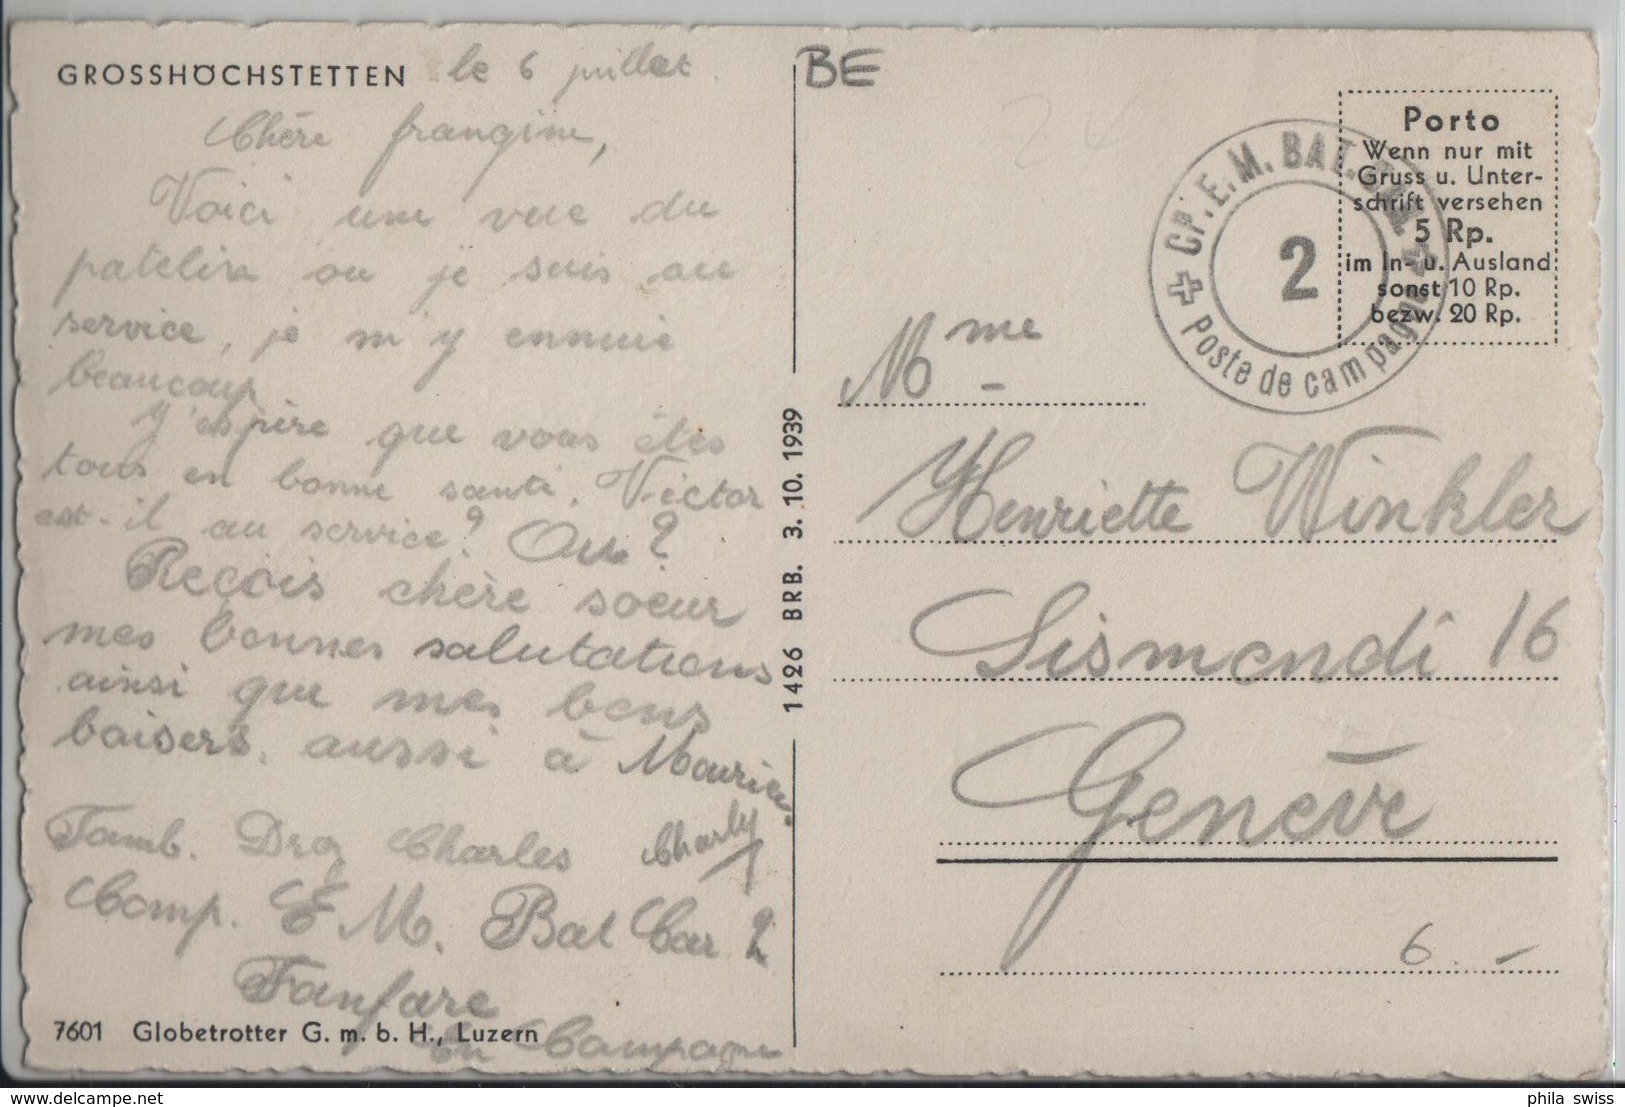 GROSSHÖCHSTETTEN le 6 juillet
Chère frangine,
Voici une vue du
patelin ou je suis au
service, je m'y ennuie
beaucoup
J'espère que vous êtes
tous en bonne santé. Victor
est-il au service? Ou?
Reçois chère soeur
mes bonnes salutations
ainsi que mes bons
baisers. aussi à Maurice.
Tamb. Droz Charles Charly
Comp. E M. Bat Car 2
Fanfare
En Campagne
7601 Globetrotter G. m. b. H., Luzern
1426 BRB. 3. 10. 1939
BE
CP. E. M. BAT. CAR.
2
Poste de campagne
Porto
Wenn nur mit
Gruss u. Unter-
schrift versehen
5 Rp.
im In- u. Ausland
sonst 10 Rp.
bezw. 20 Rp.
Mme
Henriette Winkler
Sismondi 16
Genève
6.-
delcampe.net
phila_swiss